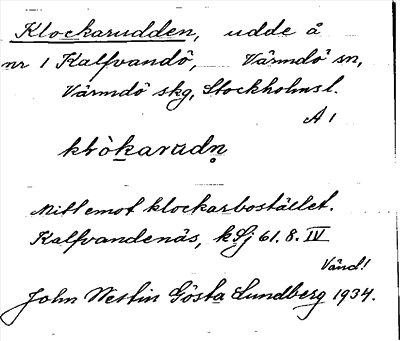 Klockarudden, udde å
nr 1 Kalfvandö, Värmdö sn,
Värmdö skg, Stockholmsl.
A 1
klòkarudn̥
Mitt emot klockarbostället.
Kalfvandenäs, k Sj 61. 8. IV
Vänd!
John Westin Gösta Lundberg 1934.